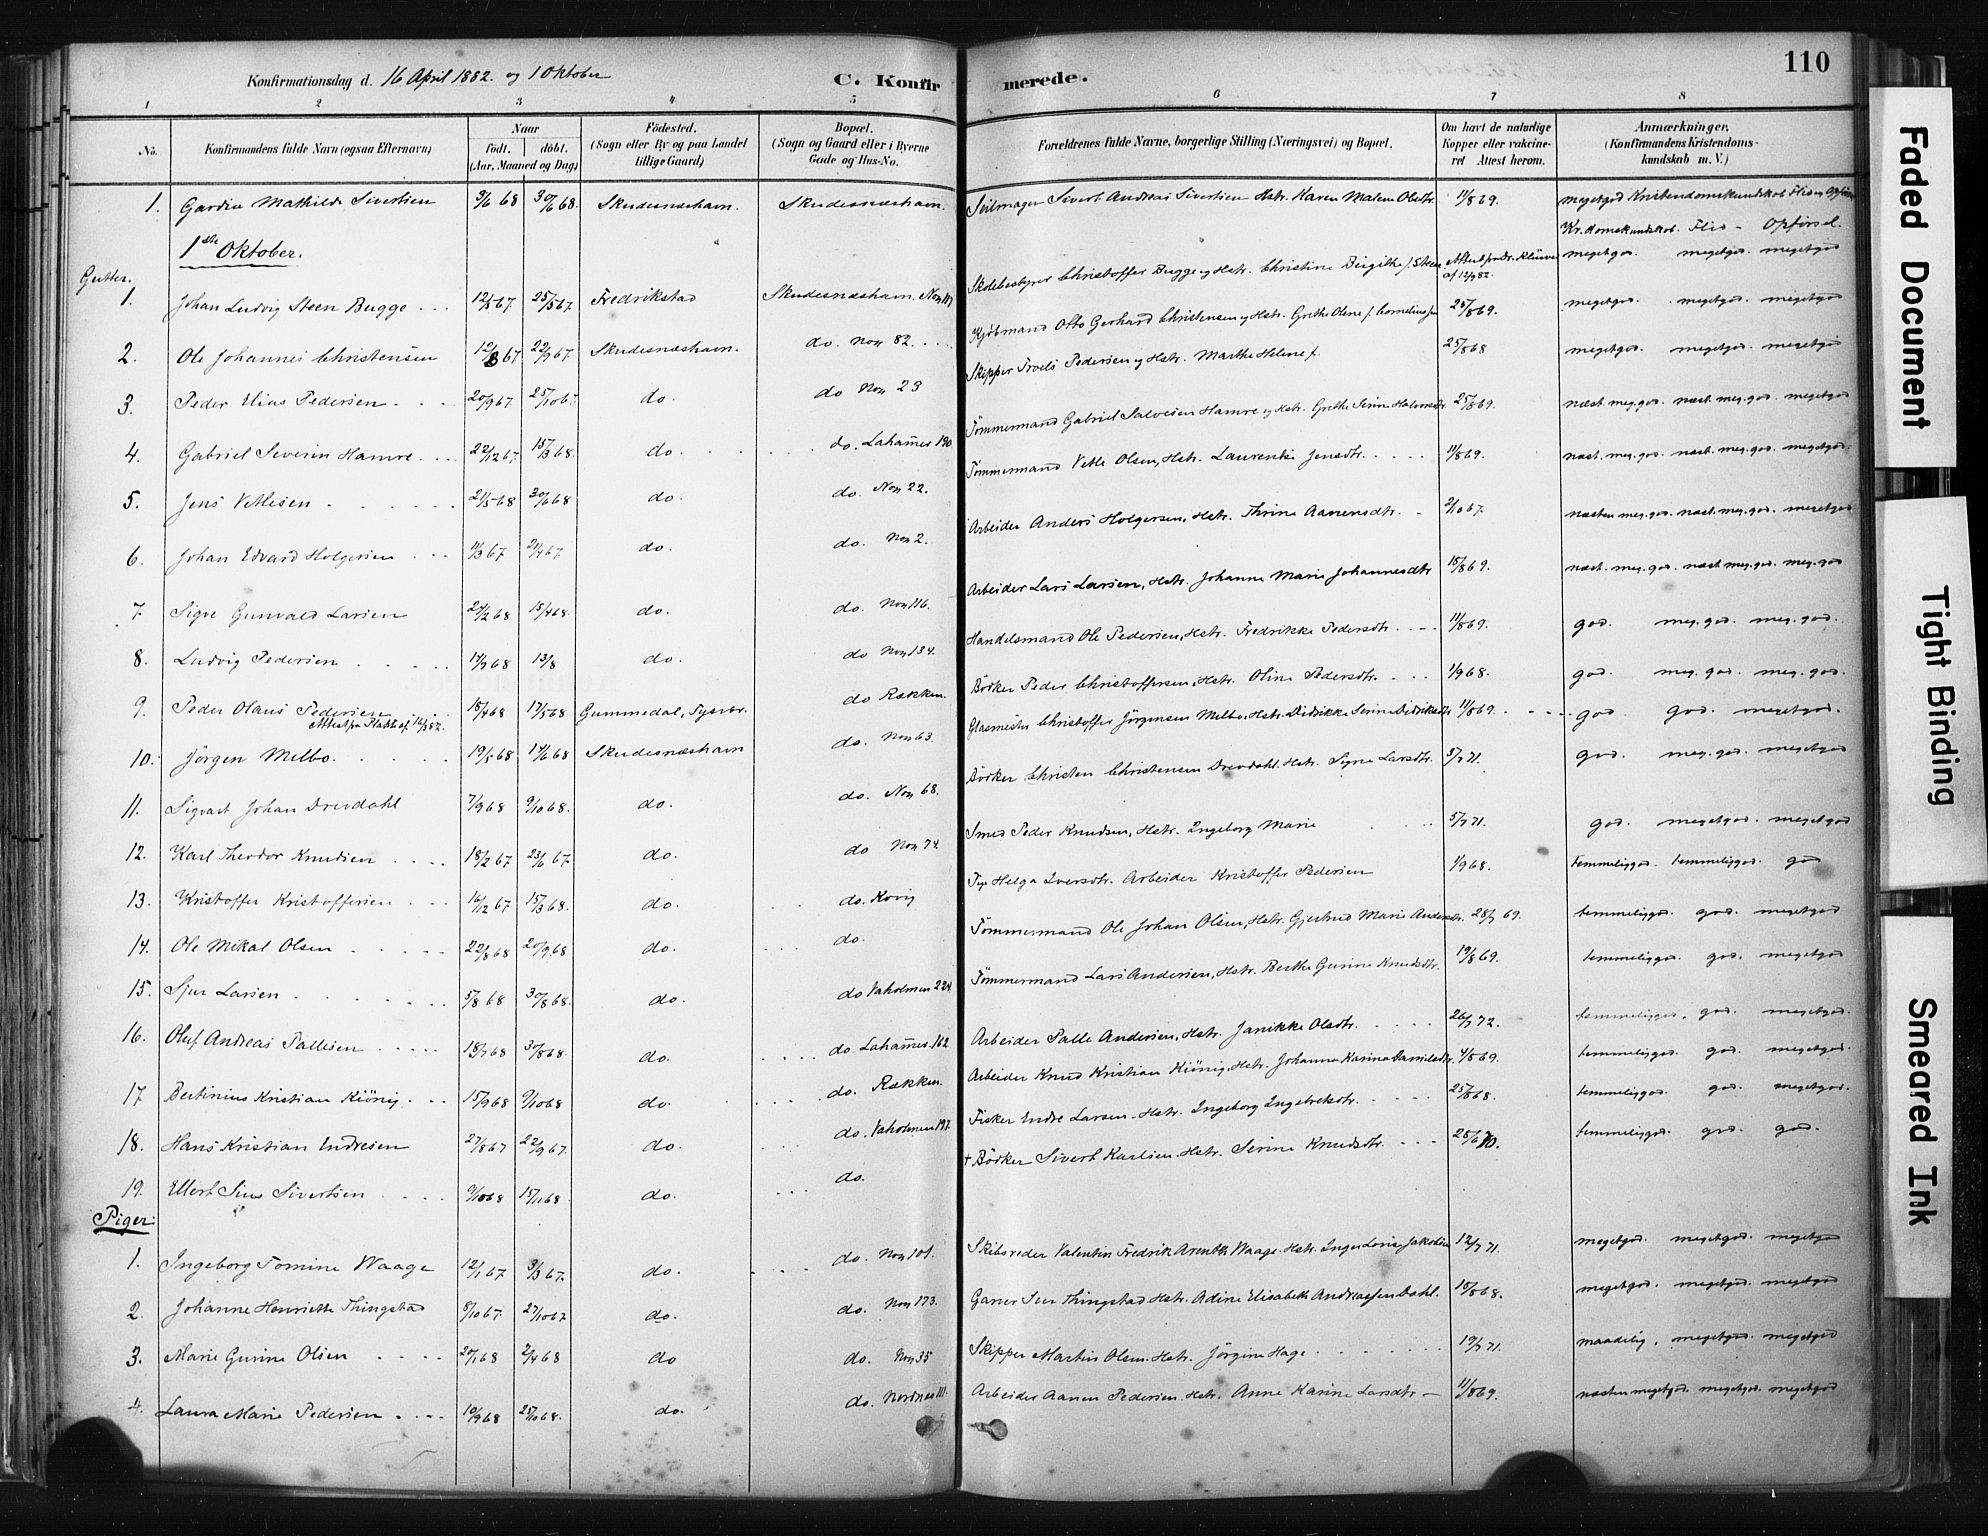 Konfirmationsdag d. 16 April 1882. og 1 Oktober C. Konfirmerede. 110
1 2 3 4 5 6 7 8
No. Konfirmandens fulde Navn (ogsaa Efternavn) Naar født. døbt. (Aar, Maaned og Dag) Födested. (Sogn eller By og paa Landet tillige Gaard) Bopæl. (Sogn og Gaard eller i Byerne Gade og Hus-No. Forældrenes fulde Navne, borgerlige Stilling (Næringsvei) og Bopæl. Om havt de naturlige Kopper eller vakcineret Attest herom. Anmærkninger. (Konfirmandens Kristendomskundskab m. V.)
1. Gardia Mathilde Sivertsen 9/6 68 30/6 68. Skudesnæshavn. Skudesnæshavn. Seilmager Sivert Andreas Sivertsen Hstr. Karen Malene Olsdtr. 11/8 69. megetgod Kristendomskundskab Flid og Opførsel
1ste Oktober. Kr.domskundskab. Flid - Opførsel.
Gutter.
1. Johan Ludvig Steen Bugge 12/3 67 25/5 67. Fredrikstad Skudesnæshavn. No 117 Skolebestyrer Christoffer Bugge og Hstr. Christine Birgithe f. Steen Attest fra Dr. Klüwer af 12/9 82. megetgod. megetgod. megetgod
2. Ole Johannes Christensen 12/8 67 22/9 67 Skudesnæshavn. do. No 82. Kjøbmand Otto Gerhard Christensen og Hstr. Grethe Olene f. Corneliussen 25/8 69. megetgod. megetgod. megetgod
3. Peder Elias Pedersen 20/9 67 25/10 67. do. do No 23 Skipper Troels Pedersen og Hstr. Marthe Helene f. 25/8 68 megetgod. megetgod. megetgod
4. Gabriel Severin Hamre 22/12 67. 15/3 68. do. do. Lahamer 190 Tømmermand Gabriel Salvesen Hamre og Hstr. Grethe Serine Halvorsdtr. 25/8 69. næst. meg. god. næst. meg. god. megetgod
5. Jens Vetlesen 21/5 68 30/6 68 do. do. No 22. Tømmermand Vetle Olsen, Hstr. Laurentse Jensdtr. 11/8 69. næst. meg. god. næst. meg. god. megetgod.
6. Johan Edvard Holgersen 11/3 67 21/4 67. do. do. No 2. Arbeider Anders Holgersen, Hstr. Thrine Aanensdtr. 2/10 67. næsten meg. god. næst. meg. god. megetgod
7. Sigve Gunvald Larsen 24/2 68 15/4 68. do. do. No 116. Arbeider Lars Larsen, Hstr. Johanne Marie Johannesdtr 15/8 69. næst. meg. god. næst. meg. god. meg. god
8. Ludvig Pedersen 14/7 68 13/8 do. do No 134. Handelsmand Ole Pedersen, Hstr. Fredrikke Pedersdtr. 11/8 69. god. meg. god. meg. god.
9. Peder Olaus Pedersen 18/4 68 17/5 68 Gummedal, Tysvær. do Rækken. Bödker Peder Christoffersen, Hstr. Oline Pedersdtr. 1/9 68. god. meg. god. meg. god.
10. Jörgen Melbo. 19/5 68 14/6 68 Skudesnæshavn do. No 63. Glasmester Christoffer Jörgensen Melbo, Hstr. Didrikke Serine Didriksdtr. 11/8 69. god. god. megetgod.
11. Sigvart Johan Drevdahl 7/9 68 9/10 68. do. do. No 68. Bödker Christen Christensen Drevdahl. Hstr. Signe Larsdtr. 5/7 71. god. meg. god. megetgod
12. Karl Theodor Knudsen 18/2 67 23/6 67. do. do No 74. Smed Peder Knudsen, Hstr. Ingeborg Marie 5/7 71. god. megetgod. megetgod
13. Kristoffer Kristoffersen 16/12 67 15/3 68. do. do. Kovig Pige Helga Iversdtr. Arbeider Kristoffer Pedersen 1/9 68. temmeliggod. temmeliggod. god
14. Ole Mikal Olsen 22/8 68 20/9 68 do. do. Tømmermand Ole Johan Olsen, Hstr. Gjertrud Marie Andersdtr. 28/7 69. temmeliggod. god. megetgod
15. Sjur Larsen 5/8 68 30/8 68. do. do Vaholmen 224. Tømmermand Lars Andersen, Hstr. Berthe Gurine Knudsdtr. 19/8 69. temmeliggod. god. megetgod
16. Oluf Andreas Pallesen 13/7 68 30/8 68. do. do. Lahamer. 162. Arbeider Palle Andersen, Hstr. Janikke Olsdtr. 26/7 72. temmeliggod. god. megetgod.
17 Bertinius Kristian Kiönig 15/9 68 9/10 68 do. do. Rækken. Arbeider Knud Kristian Kiönig. Hstr. Johanna Karina Danielsdtr. 4/8 69. temmeliggod. god. megetgod.
18. Hans Kristian Endresen 27/8 67 22/9 67. do. do. Vaholmen 197. Fisker Endre Larsen. Hstr. Ingeborg Ingebretsdtr. 25/8 68. temmeliggod. god. megetgod.
19. Ellert Sius Sivertsen 9/10 68 15/11 68. do. do. + Bödker Sivert Karlsen. Hstr. Serine Knudsdtr. 28/6 70. temmeliggod. god. god.
Piger.
1. Ingeborg Tomine Waage 12/1 67 3/3 67. do. do. No 101. Skibsreder Valentin Fredrik Arentz Waage. Hstr. Inger Lovise Jakobsen 12/7 71. megetgod. megetgod. megetgod
2. Johanne Henriette Thingstad 8/10 67. 27/10 67 do. do. No 173. Garver Iver Thingstad Hstr. Adine Elisabeth Andreassen Dahl. 15/8 68. megetgod. megetgod. megetgod
3. Marie Gurine Olsen 20/1 68 2/4 68 do do. No 35 Skipper Martin Olsen. Hstr. Jörgine Hage 19/7 71. maadelig, megetgod. megetgod
4. Laura Marie Pedersen 10/9 68 25/10 68. do. do. Nordnes 111. Arbeider Aanen Pedersen Hstr. Anne Karine Larsdtr 11/8 69. næsten megetgod. megetgod. megetgod
Faded Document
Tight Binding
Smeared Ink